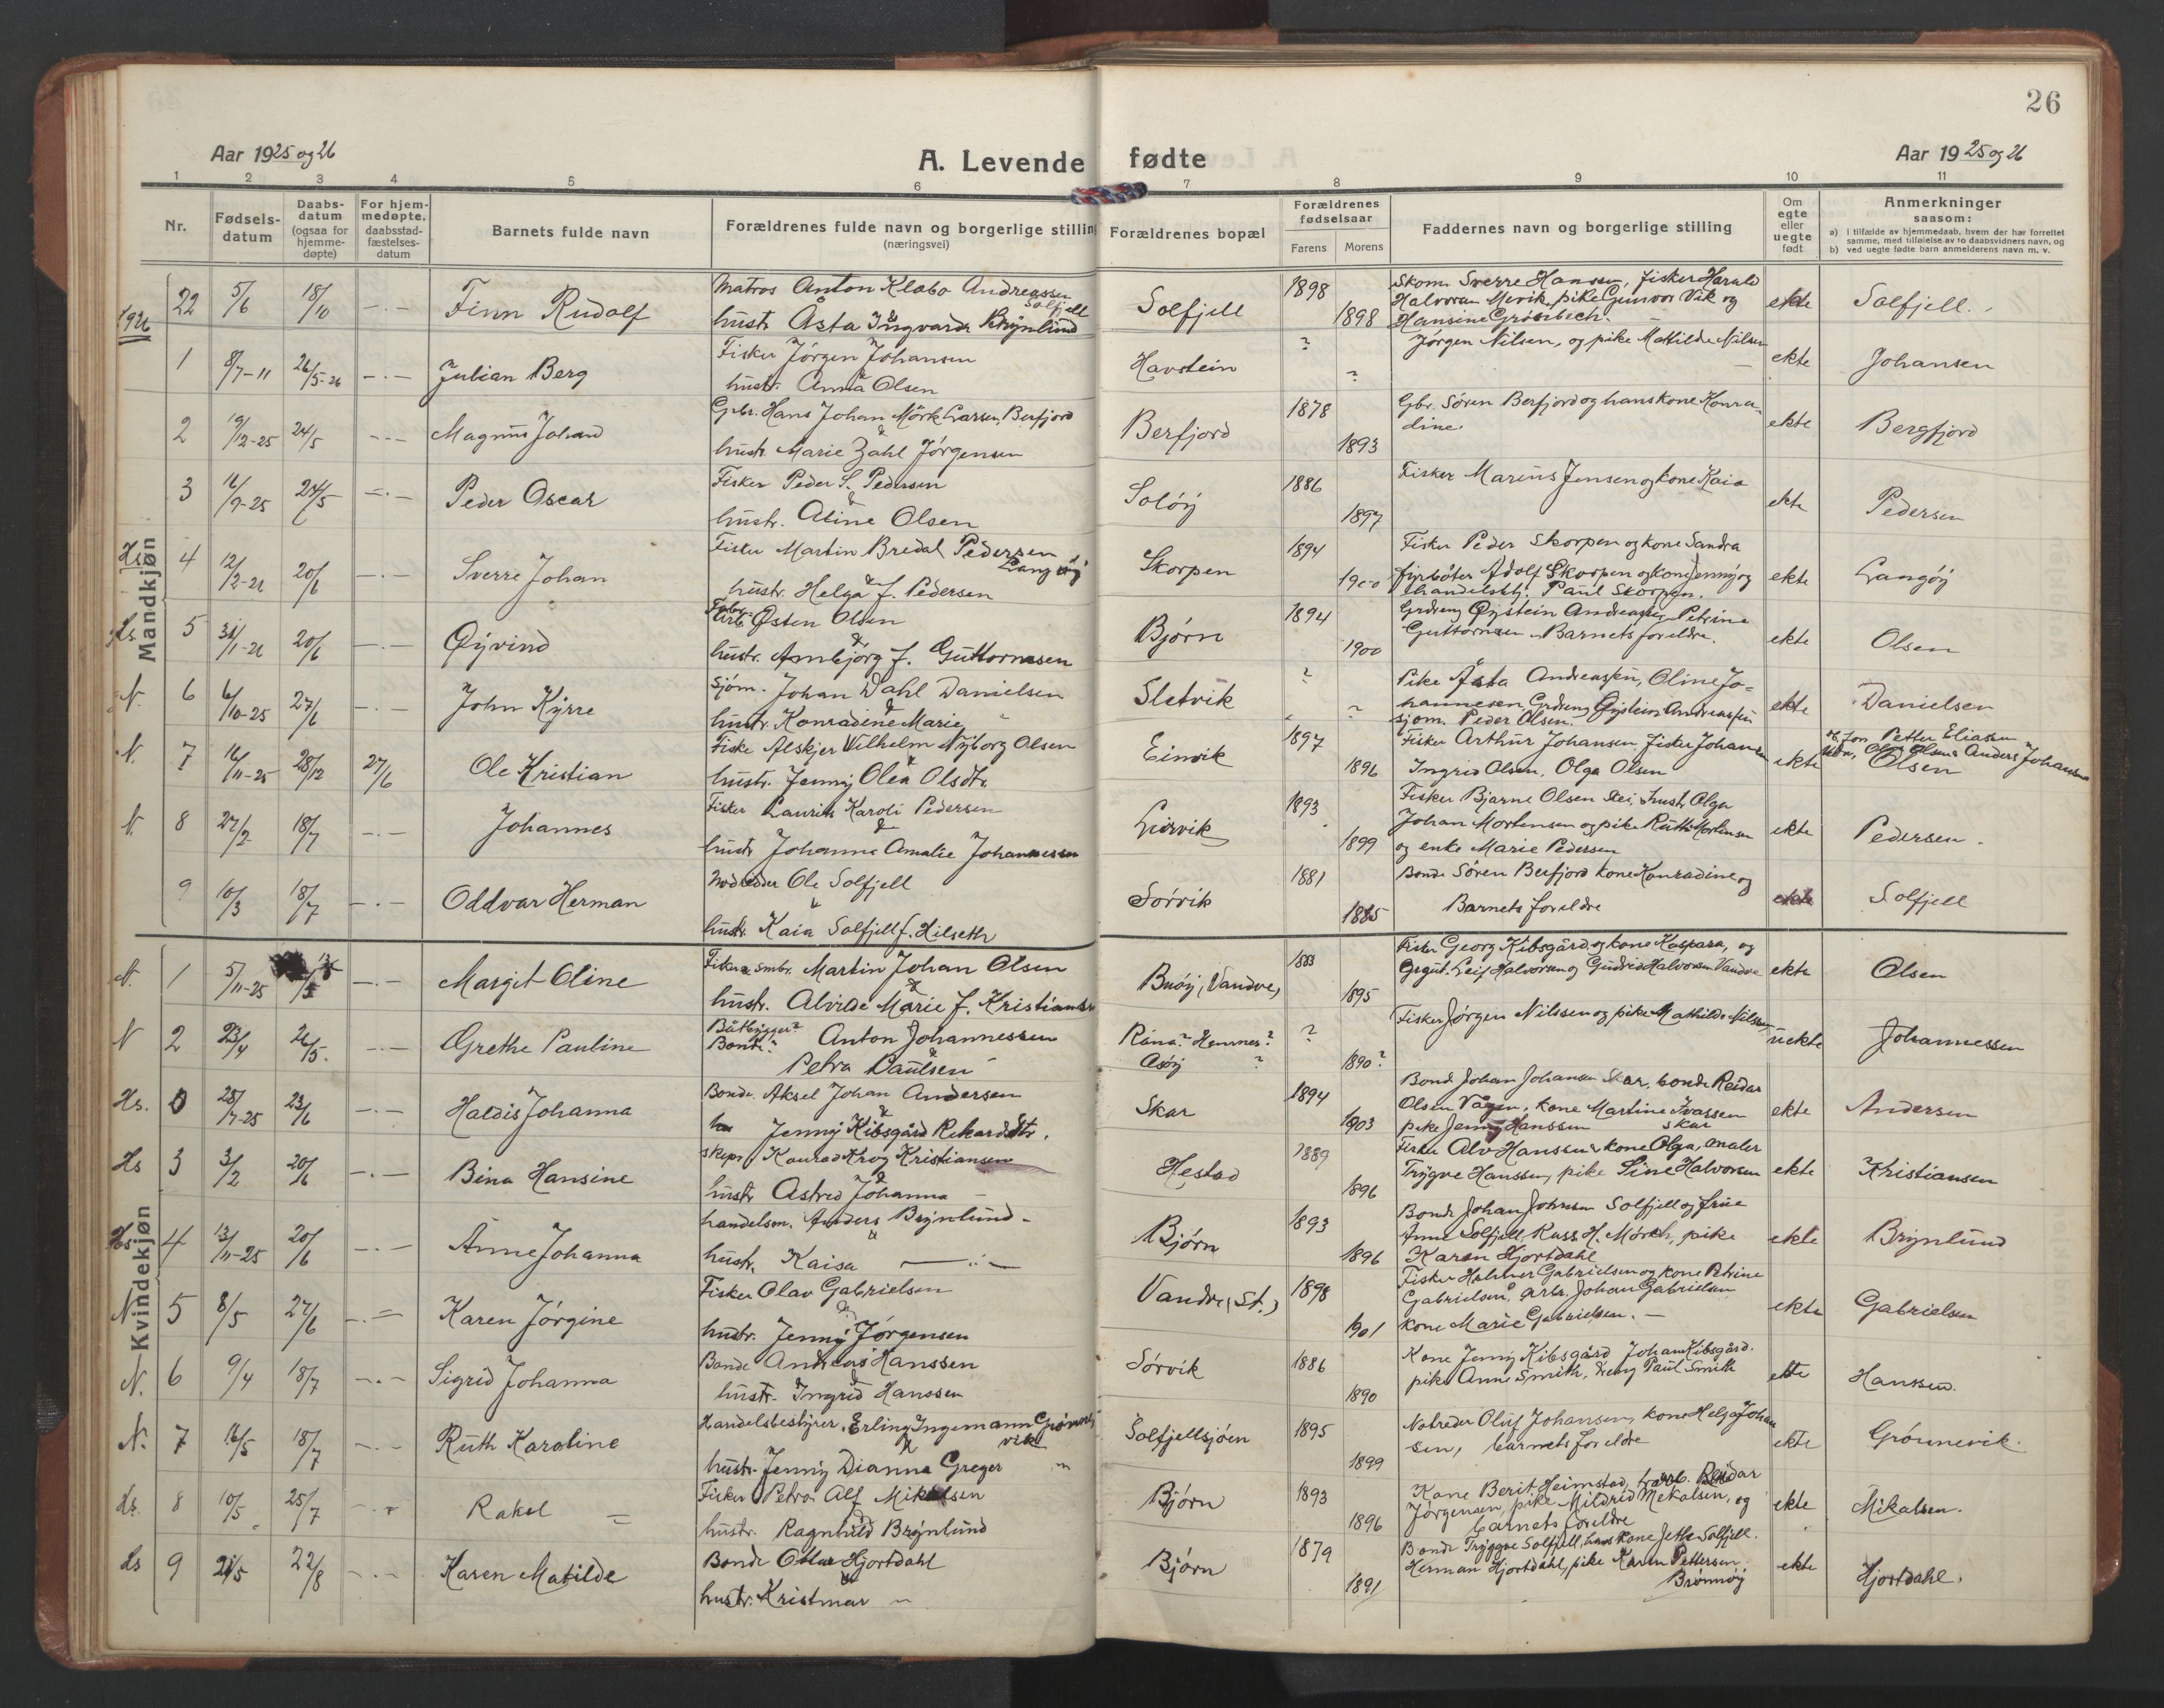 26
Aar 1925 og 26
A. Levende fødte
Aar 1925 og 26
1 2 3 4 5 6 7 8 9 10 11
Nr.
Fødsels-
datum
Daabs-
datum
(ogsaa for
hjemme-
døpte)
For hjem-
medøpte,
daabsstad-
fæstelses-
datum
Barnets fulde navn
Forældrenes fulde navn og borgerlige stilling
(næringsvei)
Forældrenes bopæl
Forældrenes
fødselsaar
Farens Morens
Faddernes navn og borgerlige stilling
Om
egte
eller
uegte
født
Anmerkninger
saasom:
a) i tilfælde av hjemmedaab, hvem der har forrettet
samme, med tilføielse av to daabsvidners navn, og
b) ved uegte fødte barn anmelderens navn m. v.
1926
Mandkjøn
22 5/6 18/10 -.- Finn Rudolf
Matros Anton Klæbo Andreassen
Solfjell
hustr Åsta Ingvarda Brynlund
Solfjell 1898 1898
Skom. Sverre Hanssen, fisker Harald
Halvorsen Mevik, pike Gunvor Vik og
Hansine Grønbech.
ekte Solfjell.
1 8/7-11 26/5-26 -.- Julian Berg
Fisker Jörgen Johansen
&
hustr. Anna Olsen
Havstein ? ?
Jørgen Nilsen, og pike Mathilde Nilsen
ekte Johansen
2 19/12-25 24/5 --- Magnus Johan
Gbr. Hans Johan Mörk Larsen, Berfjord
&
hustr. Marie Zahl Jörgensen
Berfjord 1878 1893
Gbr. Søren Berfjord og hans kone Konra-
dine.
ekte Bergfjord
3 16/9-25 24/5 -.- Peder Oscar
Fisker Peder S. Pedersen
&
hustr. Aline Olsen
Solöy 1886 1897
Fisker Marius Jensen og kone Kaia
ekte Pedersen
Hs 4 12/2-26 20/6 -.- Sverre Johan
Fisker Martin Bredal Pedersen
Langöy
&
hustr. Helga f. Pedersen
Skorpen 1894 1900
Fisker Peder Skorpen og kone Sandra
fyrbøter Adolf Skorpen og kone Jenny og
handelsbtj. Paul Skorpen.
ekte Langöy
Hs. 5 31/1-26 20/6 -.- Øyvind
Arb. Østen Olsen
&
hustr. Arnbjörg f. Guttormsen
Bjørn 1894 1900
Grdreng Øystein Andreassen, Petrine
Guttormsen, Barnets foreldre.
ekte Olsen
N. 6 6/10-25 27/6 -.- John Kyrre
Sjöm. Johan Dahl Danielsen
&
hustr. Konradine Marie
Sletvik ? ?
Pike Åsta Andreassen, Oline Jo-
hannesen, Grdreng Øystein Andreassen
sjöm. Peder Olsen.
ekte Danielsen
N. 7 16/11-25 28/12 27/6 Ole Kristian
Fisker Alskjer Wilhelm Nyborg Olsen
&
hustr. Jenny Olea Olsdtr.
Einvik 1897 1896
Fisker Arthur Johansen, fisker Johansen
Ingrid Olsen, Olga Olsen
ekte Petter Eliassen
Anders Johansen
Olsen
N. 8 27/2 18/7 -.- Johannes
Fisker Laurits Karoli Pedersen
&
hustr Johanna Amalie Johannessen
Leirvik 1893 1899
Fisker Bjarne Olsen Slei, hustr Olga
Johan Mortensen og pike Ruth Mortensen
og enke Marie Pedersen
ekte Pedersen.
9 10/3 18/7 -.- Oddvar Herman
Notreder Ole Solfjell
&
hustr. Kaia Solfjell f. Hilseth
Sörvik 1881 1885
Bonde Sören Berfjord kone Konradine og
Barnets foreldre
ekte Solfjell
Kvindekjøn
N. 1 5/11-25 -.- Margit Oline
Fisker & smbr. Martin Johan Olsen
&
hustr. Alvilde Marie f. Kristiansen
Buöy, (Vandve) 1883 1895
Fisker Georg Kibsgård og kone Kaspara, og
Grgut. Leif Halvorsen og Gudrid Halvorsen Vandve
ekte Olsen
N 2 23/4 26/5. -.- Grethe Pauline
Båtbygger?
Bonde? Anton Johannessen
&
Petra Paulsen
Rana? Hemnes?
Asöy ? ? 1890?
Fisker Jørgen Nilssen og pike Mathilde Nilsen
uekte Johannessen
Hs. 0 28/7-25 23/6 -.- Haldis Johanna
Bonde Aksel Johan Andersen
&
Jenny Kibsgård Rikardsdtr.
Skar 1894 1903
Bonde Johan Johansen Skar, bonde Reidar
Olsen Vågen, kone Martine Ivassen
pike Jenny Hanssen Skar
ekte Andersen
Hs 3 3/2 20/6 -.- Bina Hansine
Skipr. Konrad Krog Kristiansen
&
hustr Astrid Johanna
Hestad 1889 1896
Fisker Alv Hanssen & kone Olga, maler
Trygve Hanssen, pike Line Halvorsen
ekte Kristiansen
Hs 4 13/11-25 20/6 -.- Anne Johanna
handelsm. Anders Brynlund -
&
hustr. Kaisa —.:—
Bjørn 1893 1896
Bonde Johan Johnsen Solfjell og frue
Anna Solfjell, Russ H. Mörch, pike
Karen Hjortdahl
ekte Brynlund
N. 5 8/5 27/6 -.- Karen Jörgine
Fisker Olav Gabrielsen
&
hustr. Jenny Jørgensen
Vandve (St.) 1898 1901
Fisker Halmer Gabrielsen og kone Petrine
Gabrielsen, arb. Johan Gabrielsen
kone Marie Gabrielsen. -
ekte Gabrielsen
N. 6 9/4 18/7 -.- Sigrid Johanna
Bonde Andreas Hanssen
&
hustr. Ingrid Hanssen
Sörvik 1886 1890
Kone Jenny Kibsgård Johan Kibsgård.
pike Anna Smith, dreng Paul Smith
ekte Hanssen.
N. 7 16/5 18/7 -.- Ruth Karoline
Handelsbestyrer. Erling Ingemann Grønne-
vik
&
hustr. Jenny Dianna Greger
Solfjellsjöen 1895 1899
Notreder Oluf Johansen, kone Helga Johan
sen, barnets foreldre
ekte Grönnevik.
Hs. 8 10/5 25/7 -.- Rakel
Fisker Petro Alf Mikalsen
&
hustr. Ragnhild Brynlund
Bjørn 1893 1896
Kone Berit Heimstad, Reidar
Jørgensen, pike Mildrid Mekalsen, og
barnets foreldre
ekte Mikalsen.
Hs 9 21/5 22/8 -.- Karen Matilde
Bonde Ottar Hjortdahl
&
hustr. Kristmar
Bjørn 1879 1891
Bonde Tryggve Solfjell, hans kone Jethe Solfjell.
Herman Hjortdahl, pike Karen Pettersen
Brønnøy
ekte Hjortdahl.